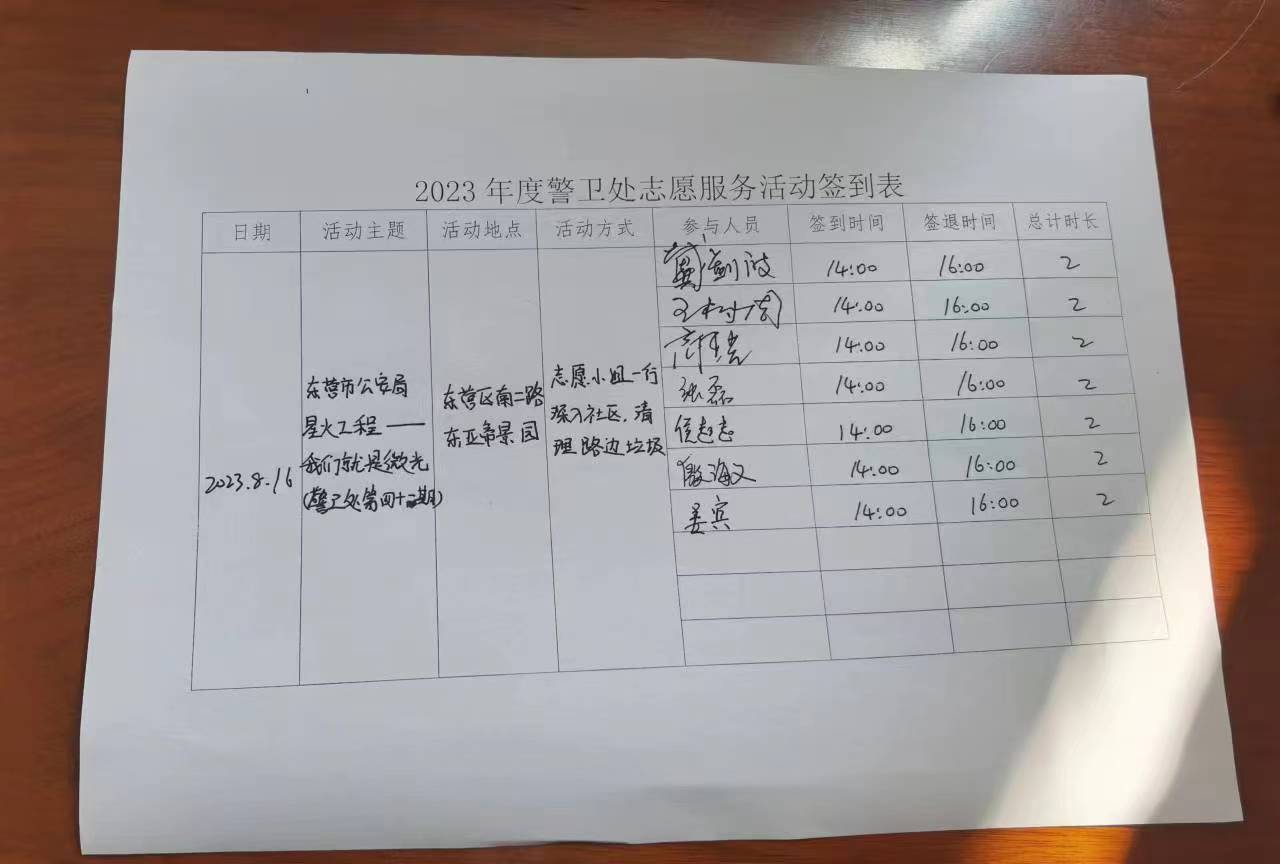 2023年度警卫处志愿服务活动签到表
日期 活动主题 活动地点 活动方式 参与人员 签到时间 签退时间 总计时长
2023.8.16
东营市公安局
星火工程——
我们就是微光
(警卫处第四十二期)
东营区南二路
东亚帝景园
志愿小组一行
深入社区,清
理路边垃圾
14:00 16:00 2
14:00 16:00 2
14:00 16:00 2
张磊 14:00 16:00 2
14:00 16:00 2
14:00 16:00 2
姜宾 14:00 16:00 2